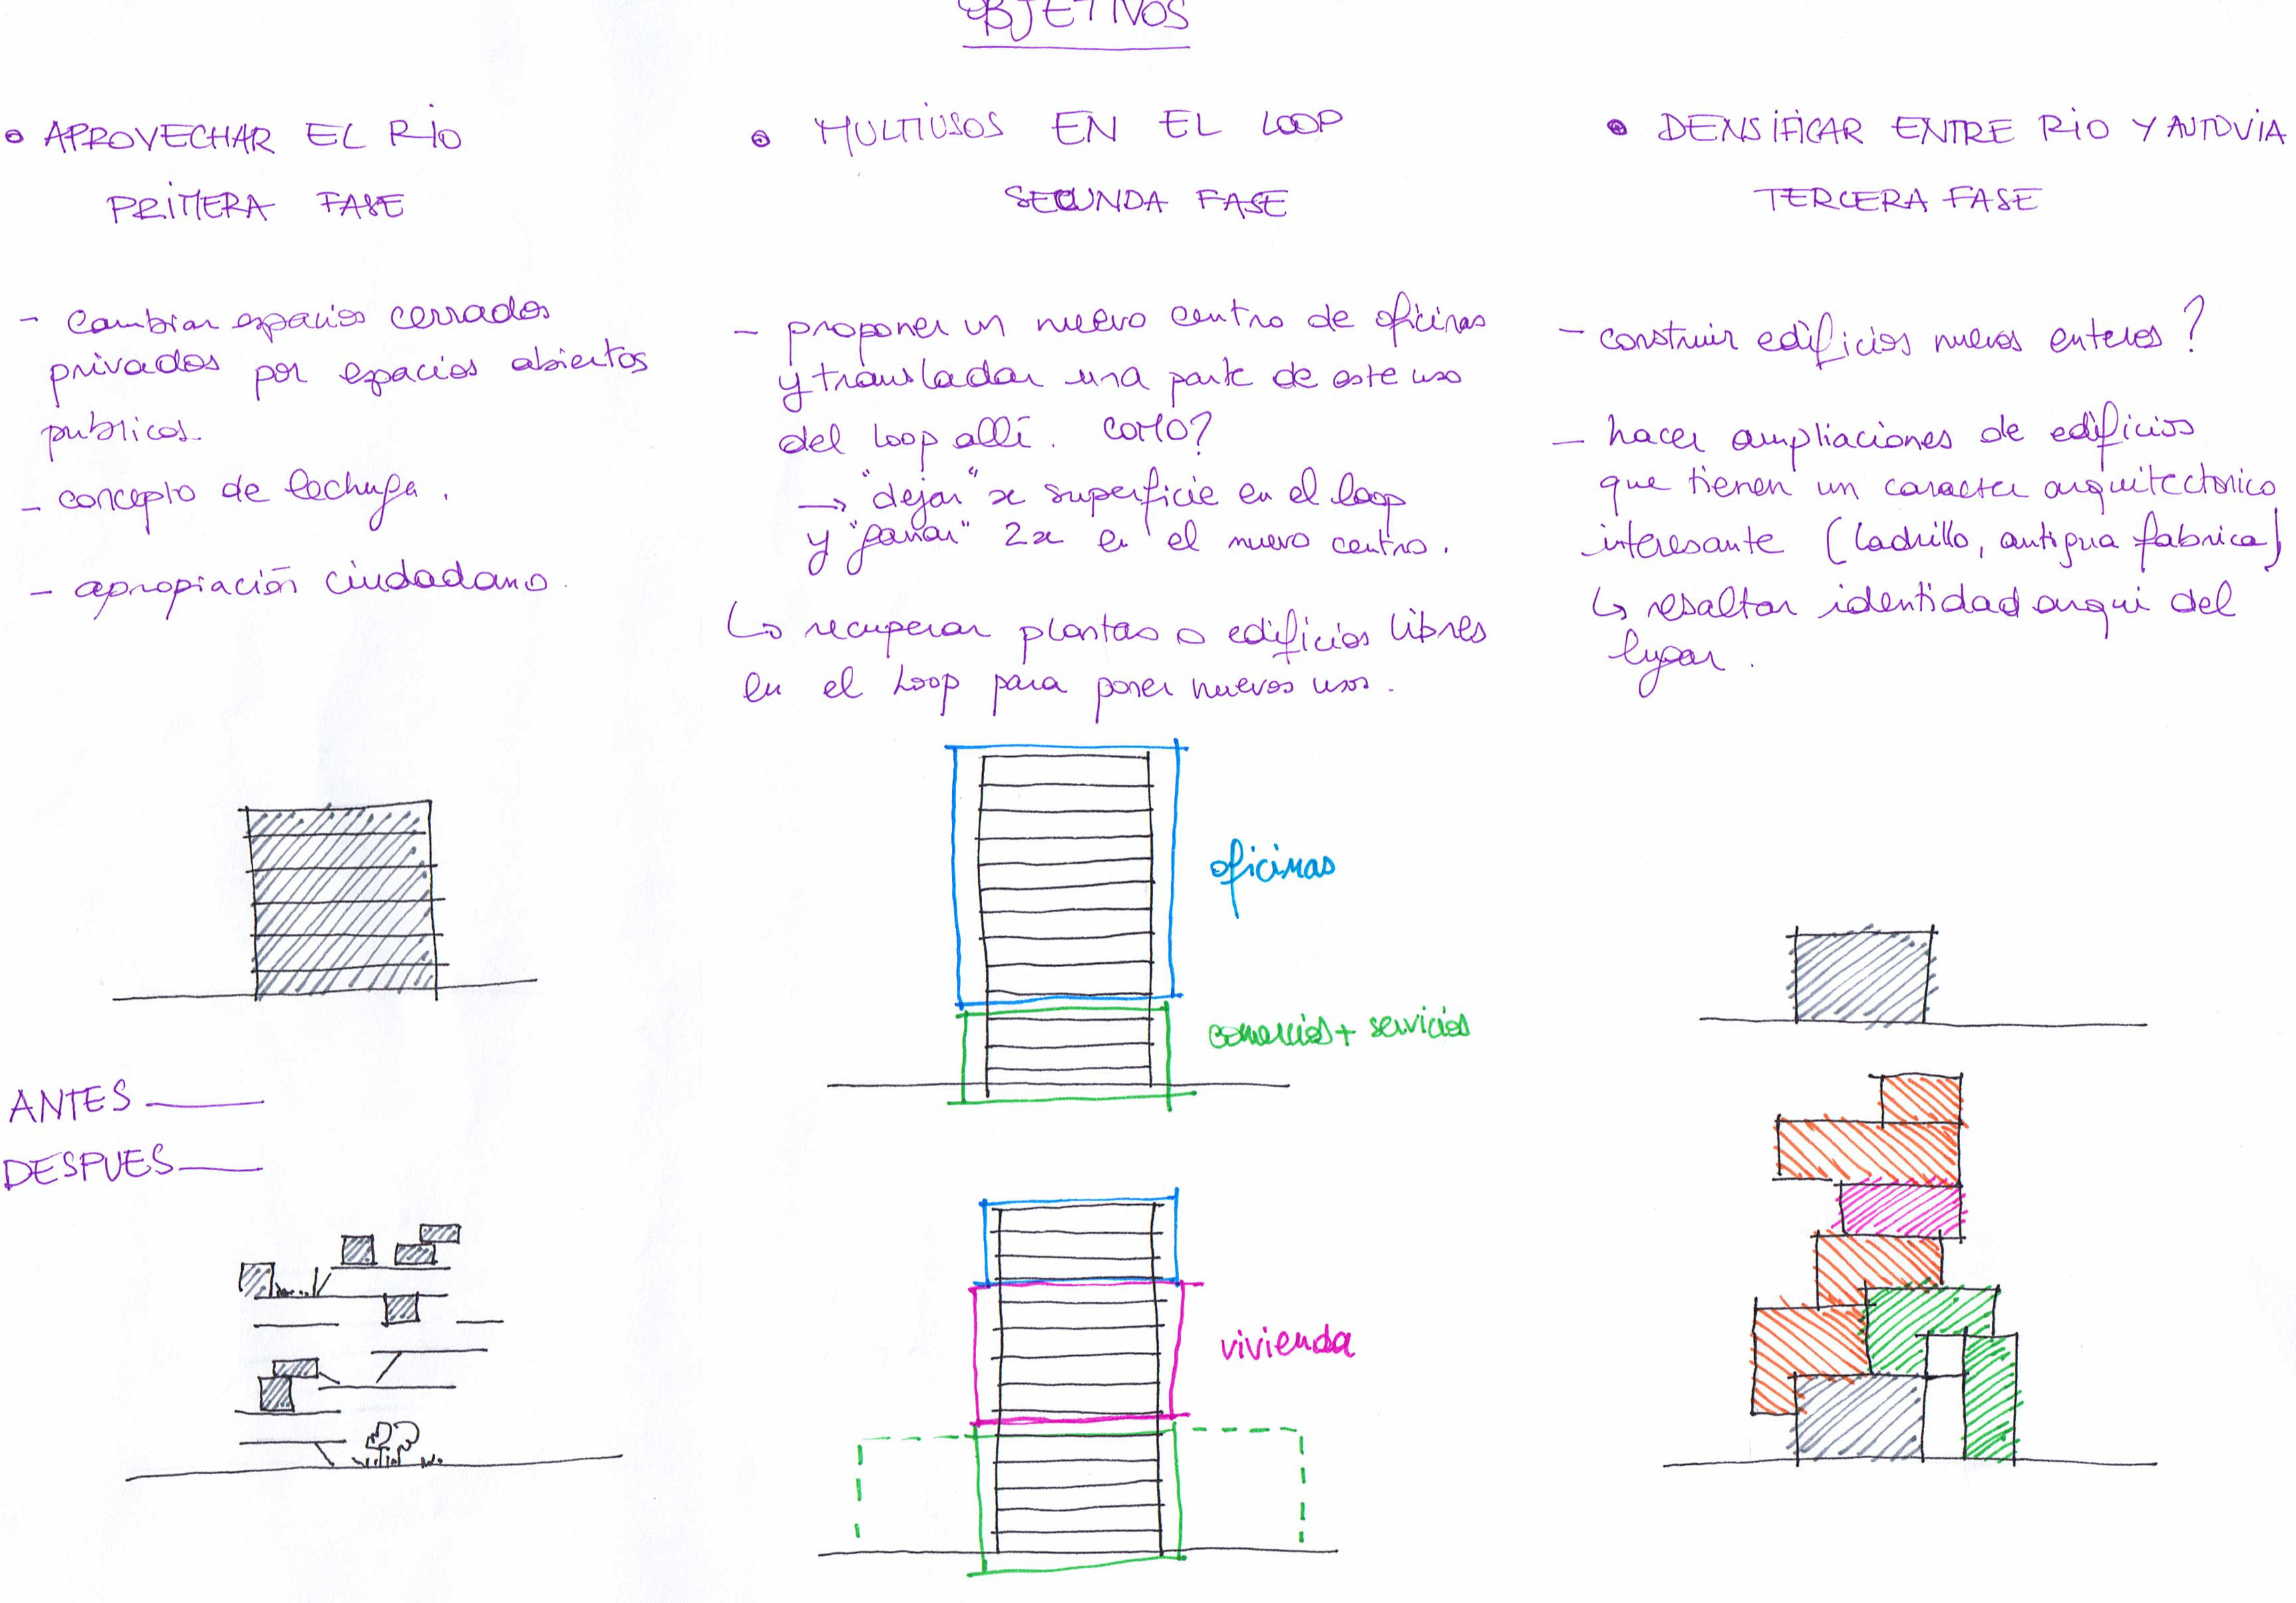 OBJETIVOS
• APROVECHAR EL RIO
PRIMERA FASE
- cambiar espacios cerrados
privados por espacios abiertos
publicos.
- concepto de lechuga.
- apropiación ciudadano.
• MULTIUSOS EN EL LOOP
SEGUNDA FASE
- proponer un nuevo centro de oficinas
y transladar una parte de este uso
del loop allí. COMO?
→ "dejar" x superficie en el loop
y "ganar" 2x en el nuevo centro.
↳ recuperar plantas o edificios libres
en el Loop para poner nuevos usos.
• DENSIFICAR ENTRE RIO Y AUTOVIA
TERCERA FASE
- construir edificios nuevos enteros?
- hacer ampliaciones de edificios
que tienen un caracter arquitectonico
interesante (ladrillo, antigua fabrica)
↳ resaltar identidad arqui del
lugar.
oficinas
comercios + servicios
ANTES
DESPUES
vivienda